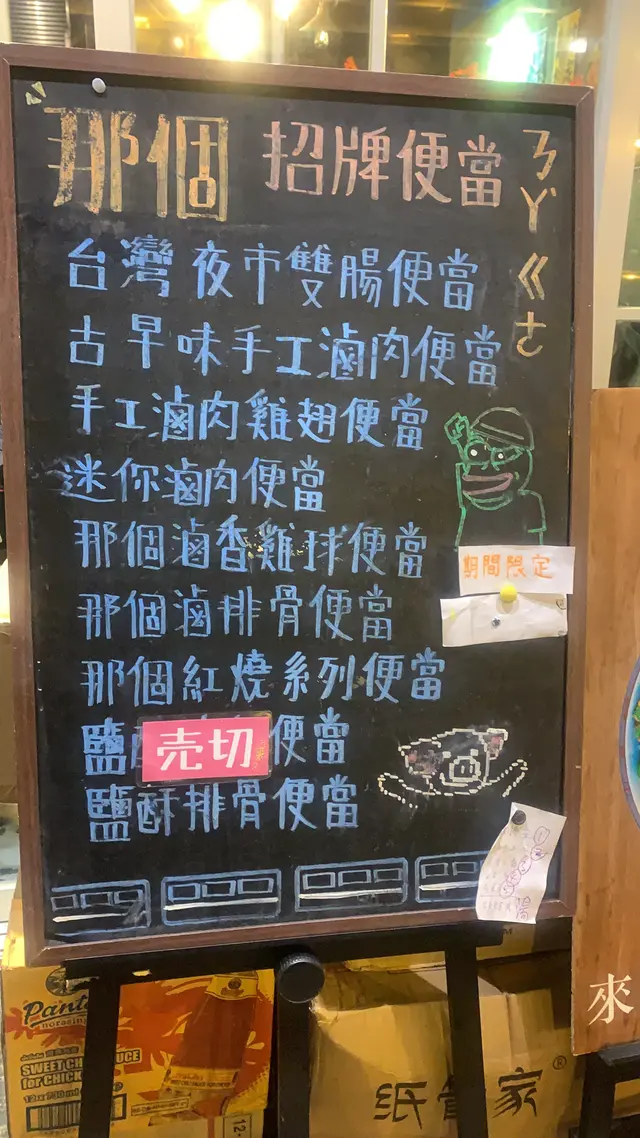 那個 招牌便當
ㄋㄚˋㄍㄜ
台灣夜市雙腸便當
古早味手工滷肉便當
手工滷肉雞翅便當
迷你滷肉便當
那個滷香雞球便當
期間限定
那個滷排骨便當
那個紅燒系列便當
鹽酥 便當
売切
鹽酥排骨便當
來
Pant
norasing
SWEET CHI SAUCE
for CHICK
纸 家®